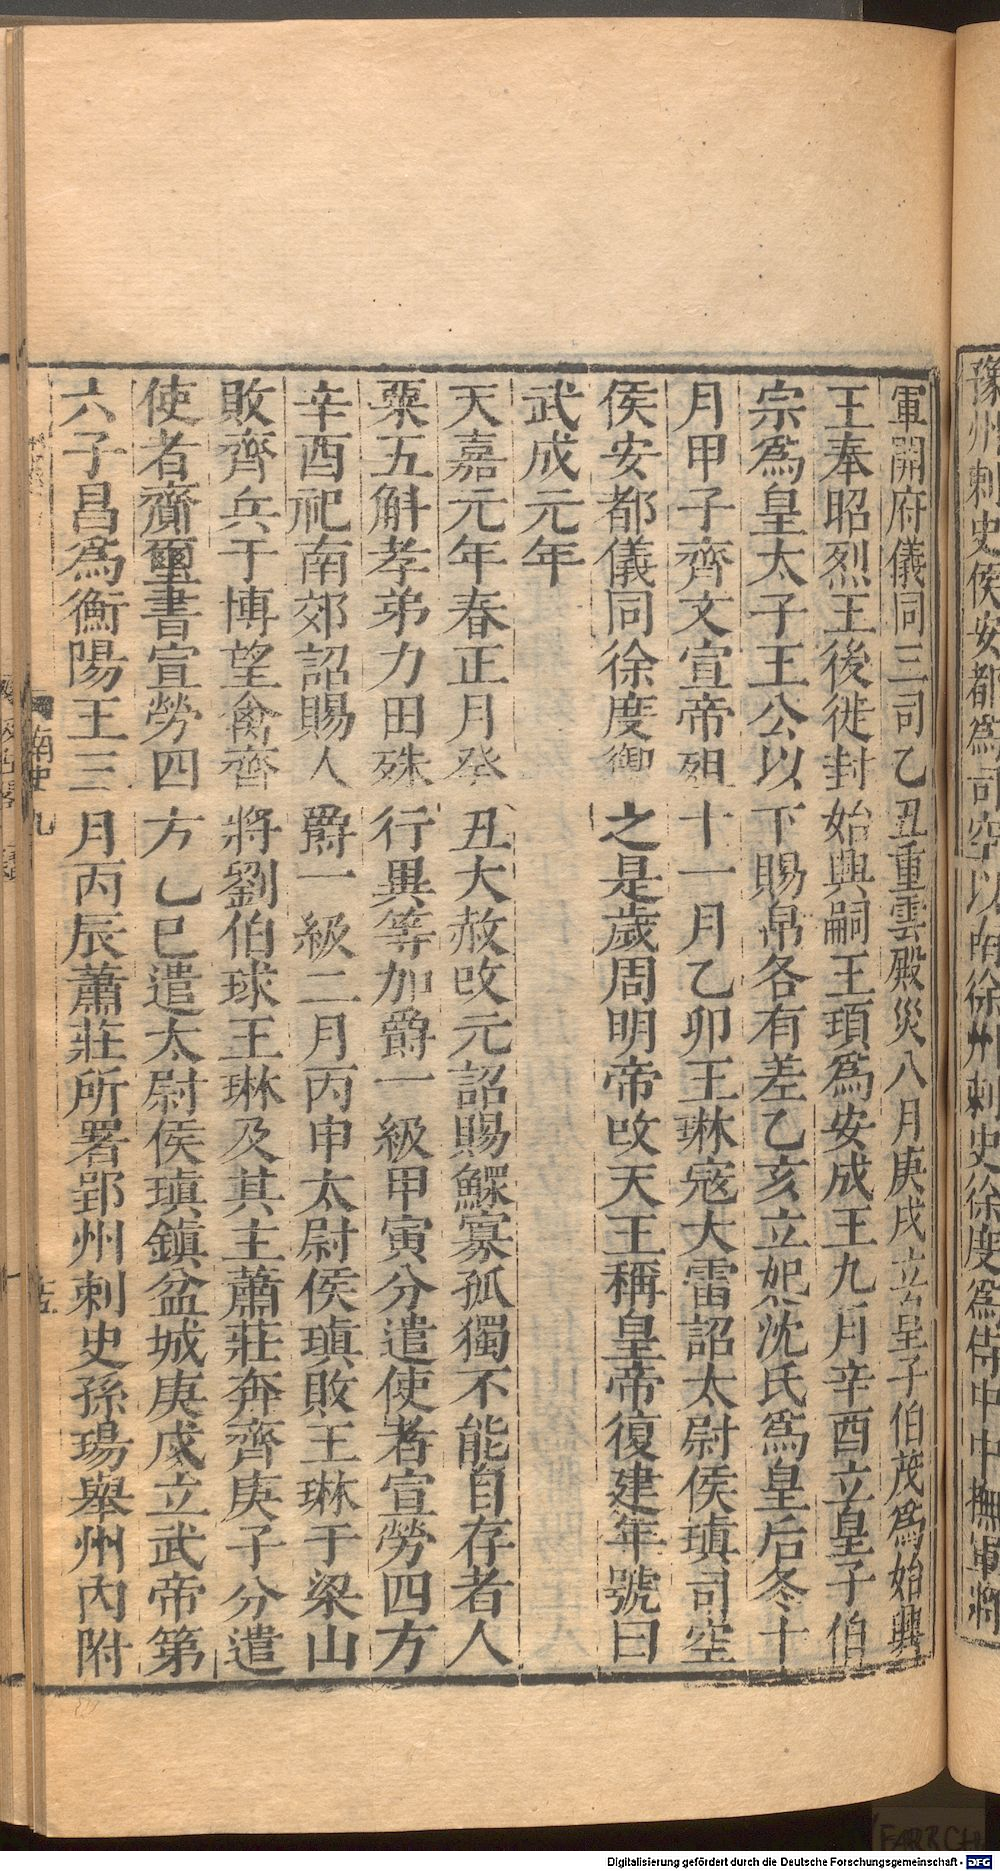 豫州刺史侯安都爲司空以南徐州刺史徐度爲侍中中撫軍將
軍開府儀同三司乙丑重雲殿災八月庚戌立皇子伯茂爲始興
王奉昭烈王後徙封始興嗣王頊爲安成王九月辛酉立皇子伯
宗爲皇太子王公以下賜帛各有差乙亥立妃沈氏爲皇后冬十
月甲子齊文宣帝殂十一月乙卯王琳寇大雷詔太尉侯瑱司空
侯安都儀同徐度御之是歲周明帝改天王稱皇帝復建年號曰
武成元年
天嘉元年春正月癸丑大赦改元詔賜鰥寡孤獨不能自存者人
粟五斛孝弟力田殊行異等加爵一級甲寅分遣使者宣勞四方
辛酉祀南郊詔賜人爵一級二月丙申太尉侯瑱敗王琳于梁山
敗齊兵于博望禽齊將劉伯球王琳及其主蕭莊奔齊庚子分遣
使者齎璽書宣勞四方乙巳遣太尉侯瑱鎮盆城庚戌立武帝第
六子昌爲衡陽王三月丙辰蕭莊所署郢州刺史孫瑒舉州內附
南史九
Digitalisierung gefördert durch die Deutsche Forschungsgemeinschaft - DFG